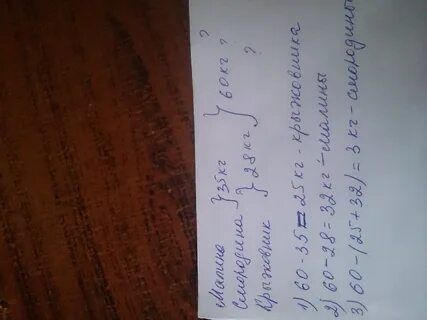 Малина } 35 кг } 60 кг ?
Смородина } 28 кг ?
Крыжовник ?
1) 60 - 35 = 25 кг - крыжовника
2) 60 - 28 = 32 кг - малины
3) 60 - (25 + 32) = 3 кг - смородины